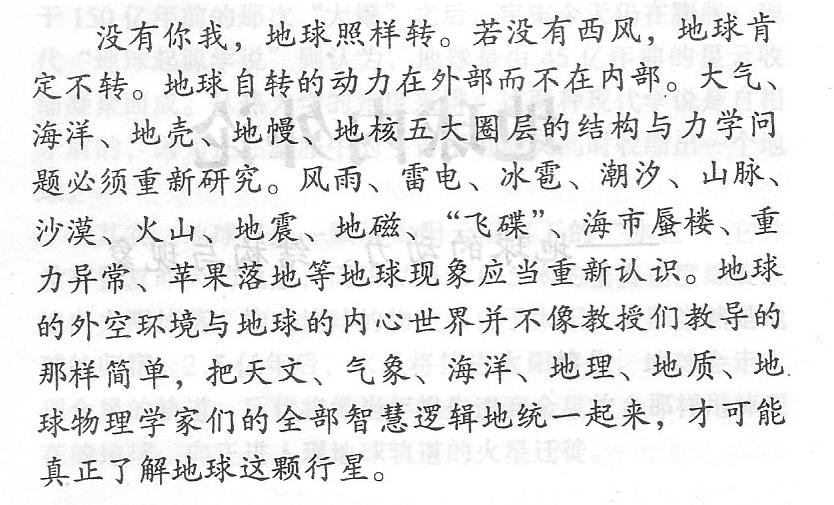 没有你我，地球照样转。若没有西风，地球肯
定不转。地球自转的动力在外部而不在内部。大气、
海洋、地壳、地幔、地核五大圈层的结构与力学问
题必须重新研究。风雨、雷电、冰雹、潮汐、山脉、
沙漠、火山、地震、地磁、“飞碟”、海市蜃楼、重
力异常、苹果落地等地球现象应当重新认识。地球
的外空环境与地球的内心世界并不像教授们教导的
那样简单，把天文、气象、海洋、地理、地质、地
球物理学家们的全部智慧逻辑地统一起来，才可能
真正了解地球这颗行星。